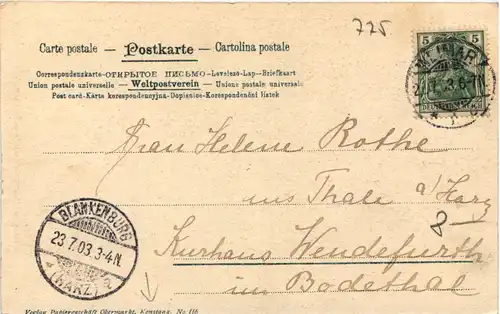 725
Carte postale – Postkarte – Cartolina postale
Correspondenzkarte–ОТКРЫТОЕ ПИСЬМО–Levelező-Lap–Briefkaart
Union postale universelle – Weltpostverein – Unione postale universale
Post card–Karta korespondencyjna–Dopisnice–Korespondenční lístek
5 5
Frau Helene Rothe
ins Thale a/Harz
Kurhaus Wendefurth
im Bodethal
BLANKENBURG
23.7.03.3-4N.
(HARZ) 2
Verlag Papiergeschäft Obermarkt, No 116